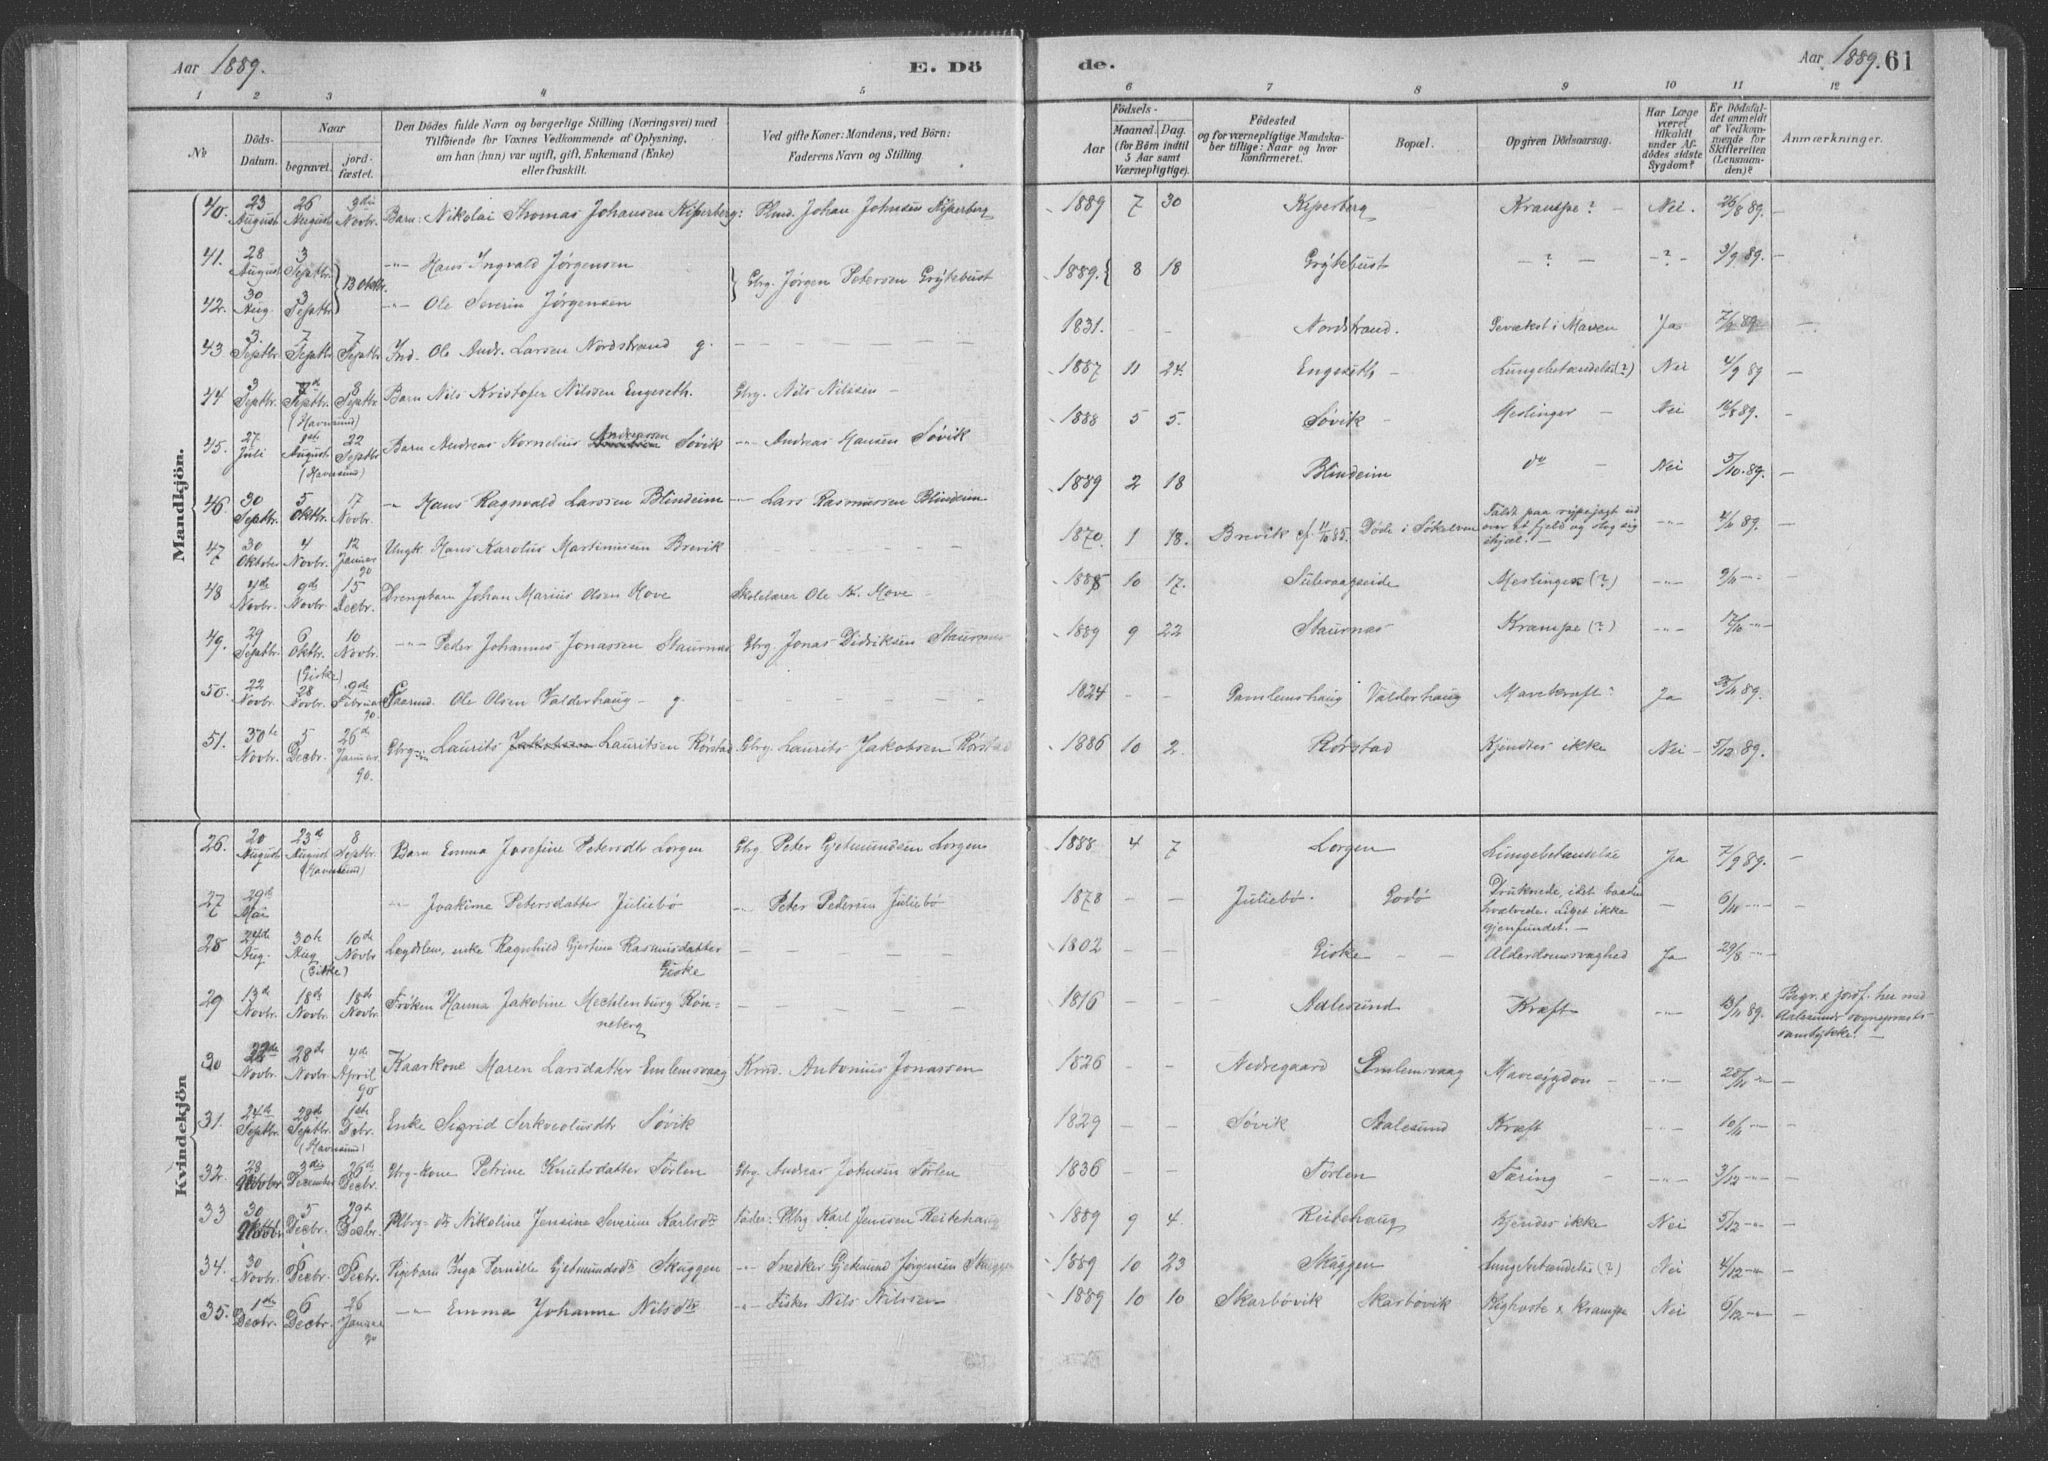 Aar 1889. E. Dö de. Aar 1889. 61
1 2 3 4 5 6 7 8 9 10 11 12
No Döds-Datum. Naar begravet. jordfæstet. Den Dödes fulde Navn og borgerlige Stilling (Næringsvei) med Tilföiende for Voxnes Vedkommende af Oplysning, om han (hun) var ugift, gift, Enkemand (Enke) eller fraskilt. Ved gifte Koner: Mandens, ved Börn: Faderens Navn og Stilling. Födsels- Aar Maaned. Dag. (for Börn indtil 5 Aar samt Værnepligtige). Födested og for værnepligtige Mandskaber tillige: Naar og hvor konfirmeret. Bopæl. Opgiven Dödsaarsag. Har Læge været tilkaldt under Afdödes sidste Sygdom? Er Dödsfaldet anmeldt af Vedkommende for Skifteretten (Lensmanden)? Anmærkninger.
Mandkjön.
40. 23 August 26 August 3die Novbr. Barn: Nikolai Thomas Johansen Kiperberg: Plmd. Johan Johnsen Kiperberg 1889 7 30 Kiperberg Krampe? Nei. 26/8 89. —
41. 28 August 3 Septbr. 13 Oktbr. —"— Hans Ingvald Jørgensen Gbrg. Jørgen Petersen Grytebust 1889. 8 18 Grytebust — ? — — ? — 3/9 89. —
42. 30 Aug. 3 Septbr. —"— Ole Severin Jørgensen
43 3. Septbr. 7 Septbr. 7 Septbr. Ind. Ole Andr. Larsen Nordstrand g. — 1831. — — Nordstrand. Gevækst i Maven Ja 7/9 89. —
44 3 Septbr. 7d Septbr. (Havnsund) 8 Septbr. Barn Nils Kristofer Nilssen Engeseth. Gbrg. Nils Nilssen — 1887 11 24. Engeseth Lungebetændelse (?) Nei 4/9 89 —
45. 27 Juli 1ste August (Havnsund) 22 Septbr. Barn Andreas Kornelius Andreassen Søvik —"— Andreas Hansen Søvik 1888 5 5. Søvik Meslinger — Nei 89. —
46. 30 Septbr. 5 Oktbr. 17 Novbr. —"— Hans Ragnvald Larssen Blindeim —"— Lars Rasmussen Blindeim 1889 2 18 Blindeim do — Nei 5/10. 89. —
47 30 Oktober 4 Novbr. 12 Januar 90 Ungk. Hans Karolus Martinusen Brevik — 1870. 1 18. Brevik cf. 11/10 85. Døde i Søkelven Faldt paa rypejagt ud over et fjeld og slog sig ihjæl. — —"— 89. —
48 4de Novbr. 9de Novbr. 15 Decbr. Drengebarn Johan Marius Olsen Hove Skolelærer Ole K. Hove — 1885 10 17. Meslinger (?) —"— 9/11 —"— —
49. 29 Septbr. 6 Oktbr. (Giske) 10 Novbr. —"— Peder Johannes Jonassen Staurnes Gbrg. Jonas Didriksen Staurnes 1889 9 22 Staurnes Krampe (?) —"— 17/10 —"— —
50. 22 Novbr. 28 Novbr. 9de Februar 90 Ole Olsen Valderhaug — g. — 1824 — — Gamlemshaug Valderhaug Mavekræft? Ja 28/11 89. —
51. 30te Novbr. 5 Decbr. 26d Januar 90. Gbrg. Laurits Jakobsen Lauritsen Rörstad Gbrg. Laurits Jakobsen Rörstad 1886 10 2. Rörstad Kjendtes ikke Nei — 5/12 89. —
Kvindekjön
26. 20 August 23d August (Havnsund) 8 Septbr. Barn Emma Josefine Petersdtr Lorgen Gbrg Peter Gjetmundsen Lorgen 1888 4 7 Lorgen Lungebetændelse Ja 7/9 89. —
27 29de Mai —"— Joakime Petersdatter Juliebø —"— Peter Pedersen Juliebø 1878 — — Juliebø. Godø Druknede, idet baaden hvælvede. Liget ikke gjenfundet. — — 6/11 —"— —
28 24de Aug. 30te Aug (Giske) 10de Novbr Lægdslem, enke Ragnhild Gjertine Rasmusdatter Giske — 1802 — — Giske — — Alderdomsvaghed Ja 29/8 —"— —
29 13de Novbr. 18de Novbr. 18de Novbr. Frøken Hanna Jakobine Mechlenburg Rönneberg — 1816 — — Aalesund Kræft —"— 13/11 89. Begr. & jordf. her med Aalesunds sogneprests samtykke. —
30 22de Novbr. 28de Novbr. 4de April 90 Kaarkone Maren Larsdatter Emlemsvaag Krmd. Antonius Jonassen 1826 — — Nedregaard Emlemsvaag Mavesygdom — —"— 28/11 —"— —
31. 24de Septbr. 28de Septbr. (Havnsund) 1ste Decbr. Enke Sigrid Søvik 1829 — — Søvik Aalesund Kræft —"— 10/11 —"— —
32. 28 3die December 26de Decbr. Gbrg-kone Petrine Knutsdatter Tørlen Gbrg. Andreas Johnsen Tørlen 1836 — — Tørlen Tæring —"— 3/12 —"— —
33 30 5 Decbr. 29d Decbr. Nikoline Jensine Severine Karlsdtr Fader: Karl Jenssen Reitehaug 1889 9 4. Reitehaug Kjendes ikke Nei 5/12 —"— —
34. 30 Novbr. 6 Decbr. 6 Decbr. Pigebarn Inga Pernille Gjetmundsdtr Skuggen —"— Snedker Gjetmund Jørgensen Skuggen 1889 10 23 Skuggen Lungebetændelse (?) Nei 4/12 —"— —
35. 1ste Decbr. 6 Decbr. 26 Januar 90 —"— Emma Johanna Nilsdtr —"— Fisker Nils Nilssen 1889 10 10 Skarbøvik Skarbøvik Kighoste & Krampe Nei 6/12 —"— —